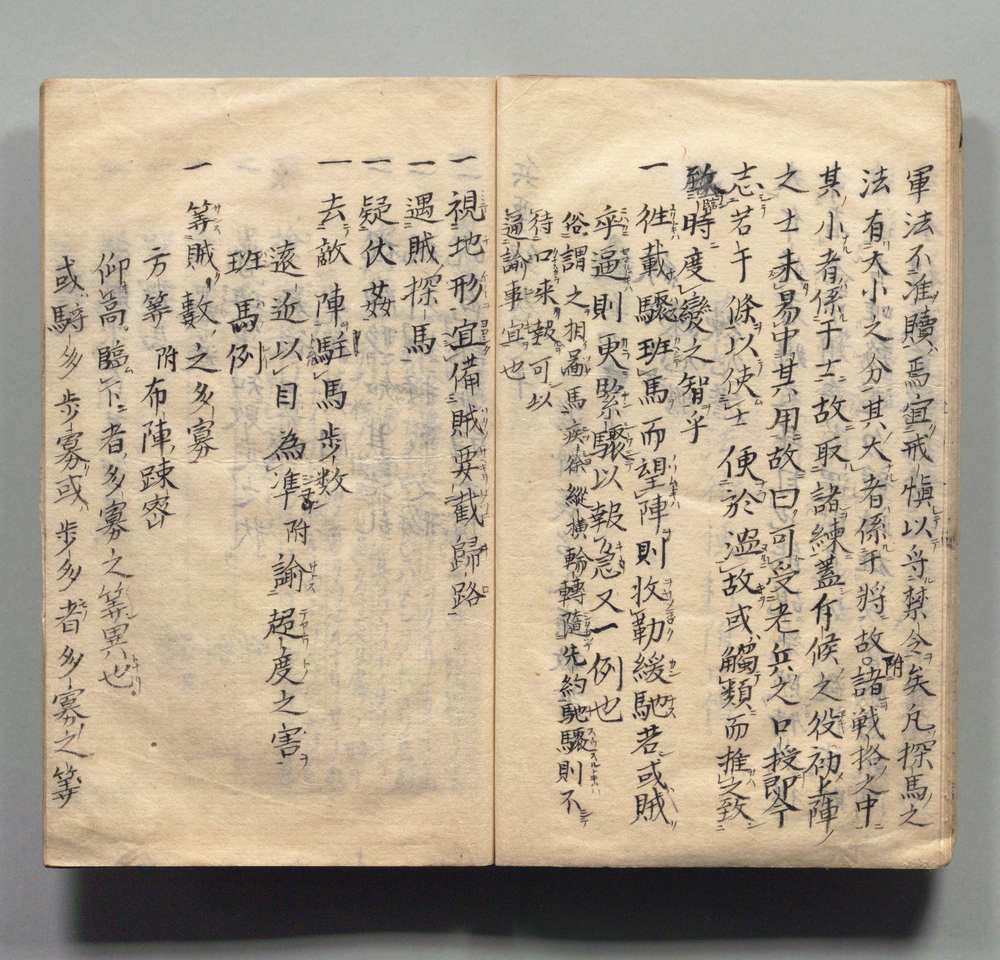 軍法不准贖焉宜戒愼以守禁令矣凡探馬之
法有大小之分其大者係于將故附諸戦挌之中
其小者係于士故取諸練蓋斥候之役初上陣
之士未易中其用故曰可受老兵之口授即今
志若干條以使士便於温故或觸類而推之致
致臨時度變之智乎
一徃載驟班馬而望陣則收勒緩馳若或賊
乎逼則更緊驟以報急又一例也
俗謂之相圖馬疾徐縱横輪轉隨先約馳驟則不
待口来報可以
逼諭事宜也
一視地形宜備賊要截歸路
一遇賊探馬
一疑伏姦
一去敵陣駐馬歩数
遠近以目為準附諭超度之害
班馬例
一筭賊數之多寡
方筭附布陣踈密
仰嵩臨下者多寡之筭異也
或騎多歩寡或歩多者多寡之筭